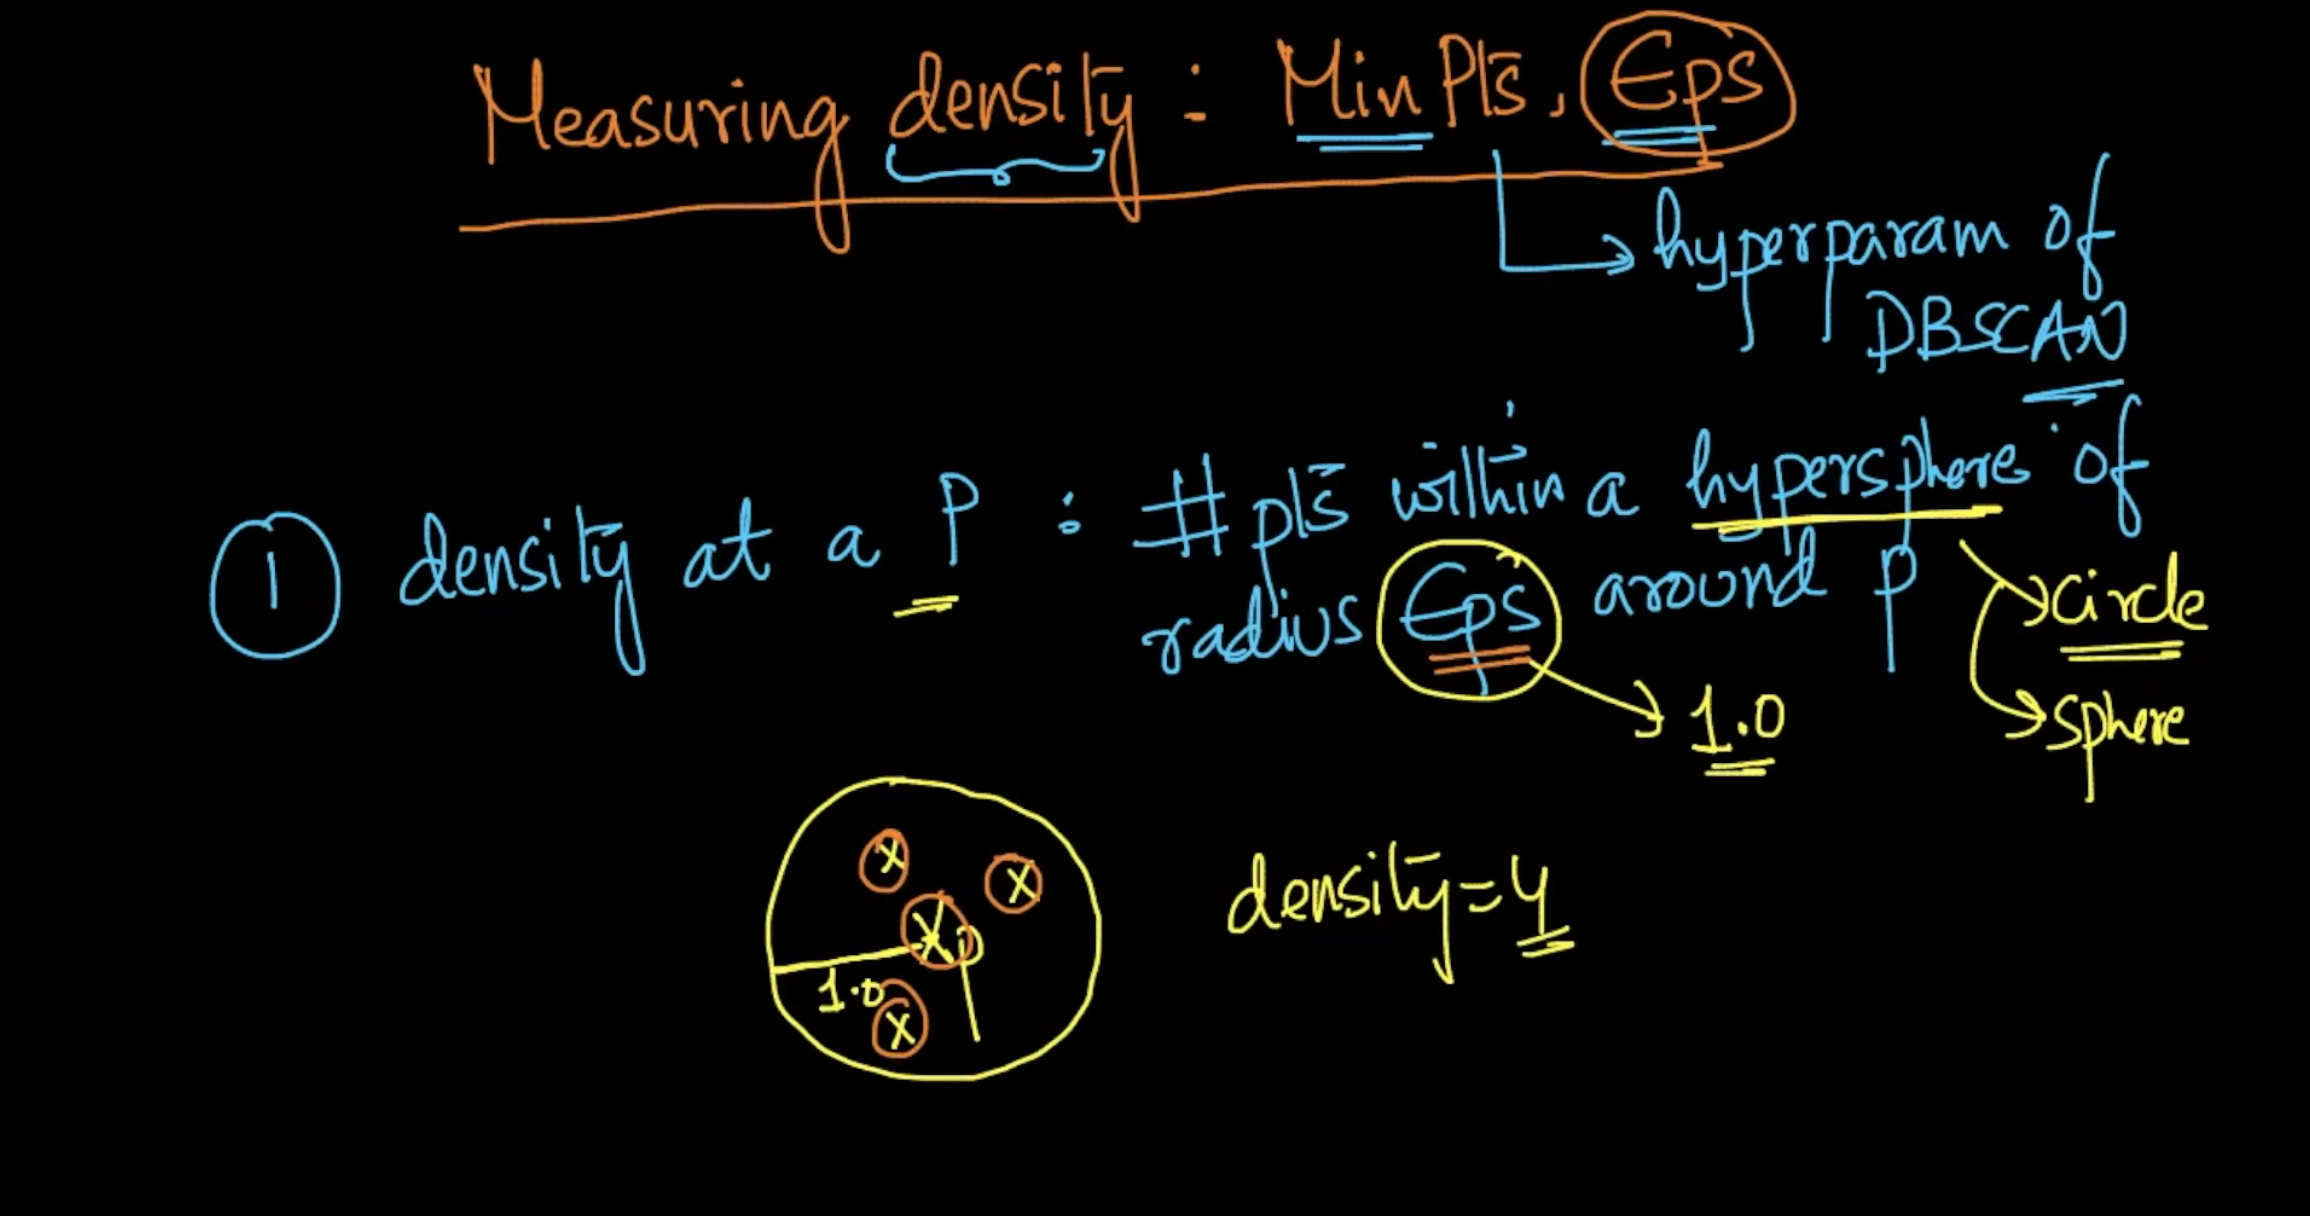 Measuring density : MinPts, Eps
hyperparam of
DBSCAN
1 density at a P : # pts within a hypersphere of
radius Eps around p
circle
sphere
1.0
x
x
x p
1.0
x
density = 4